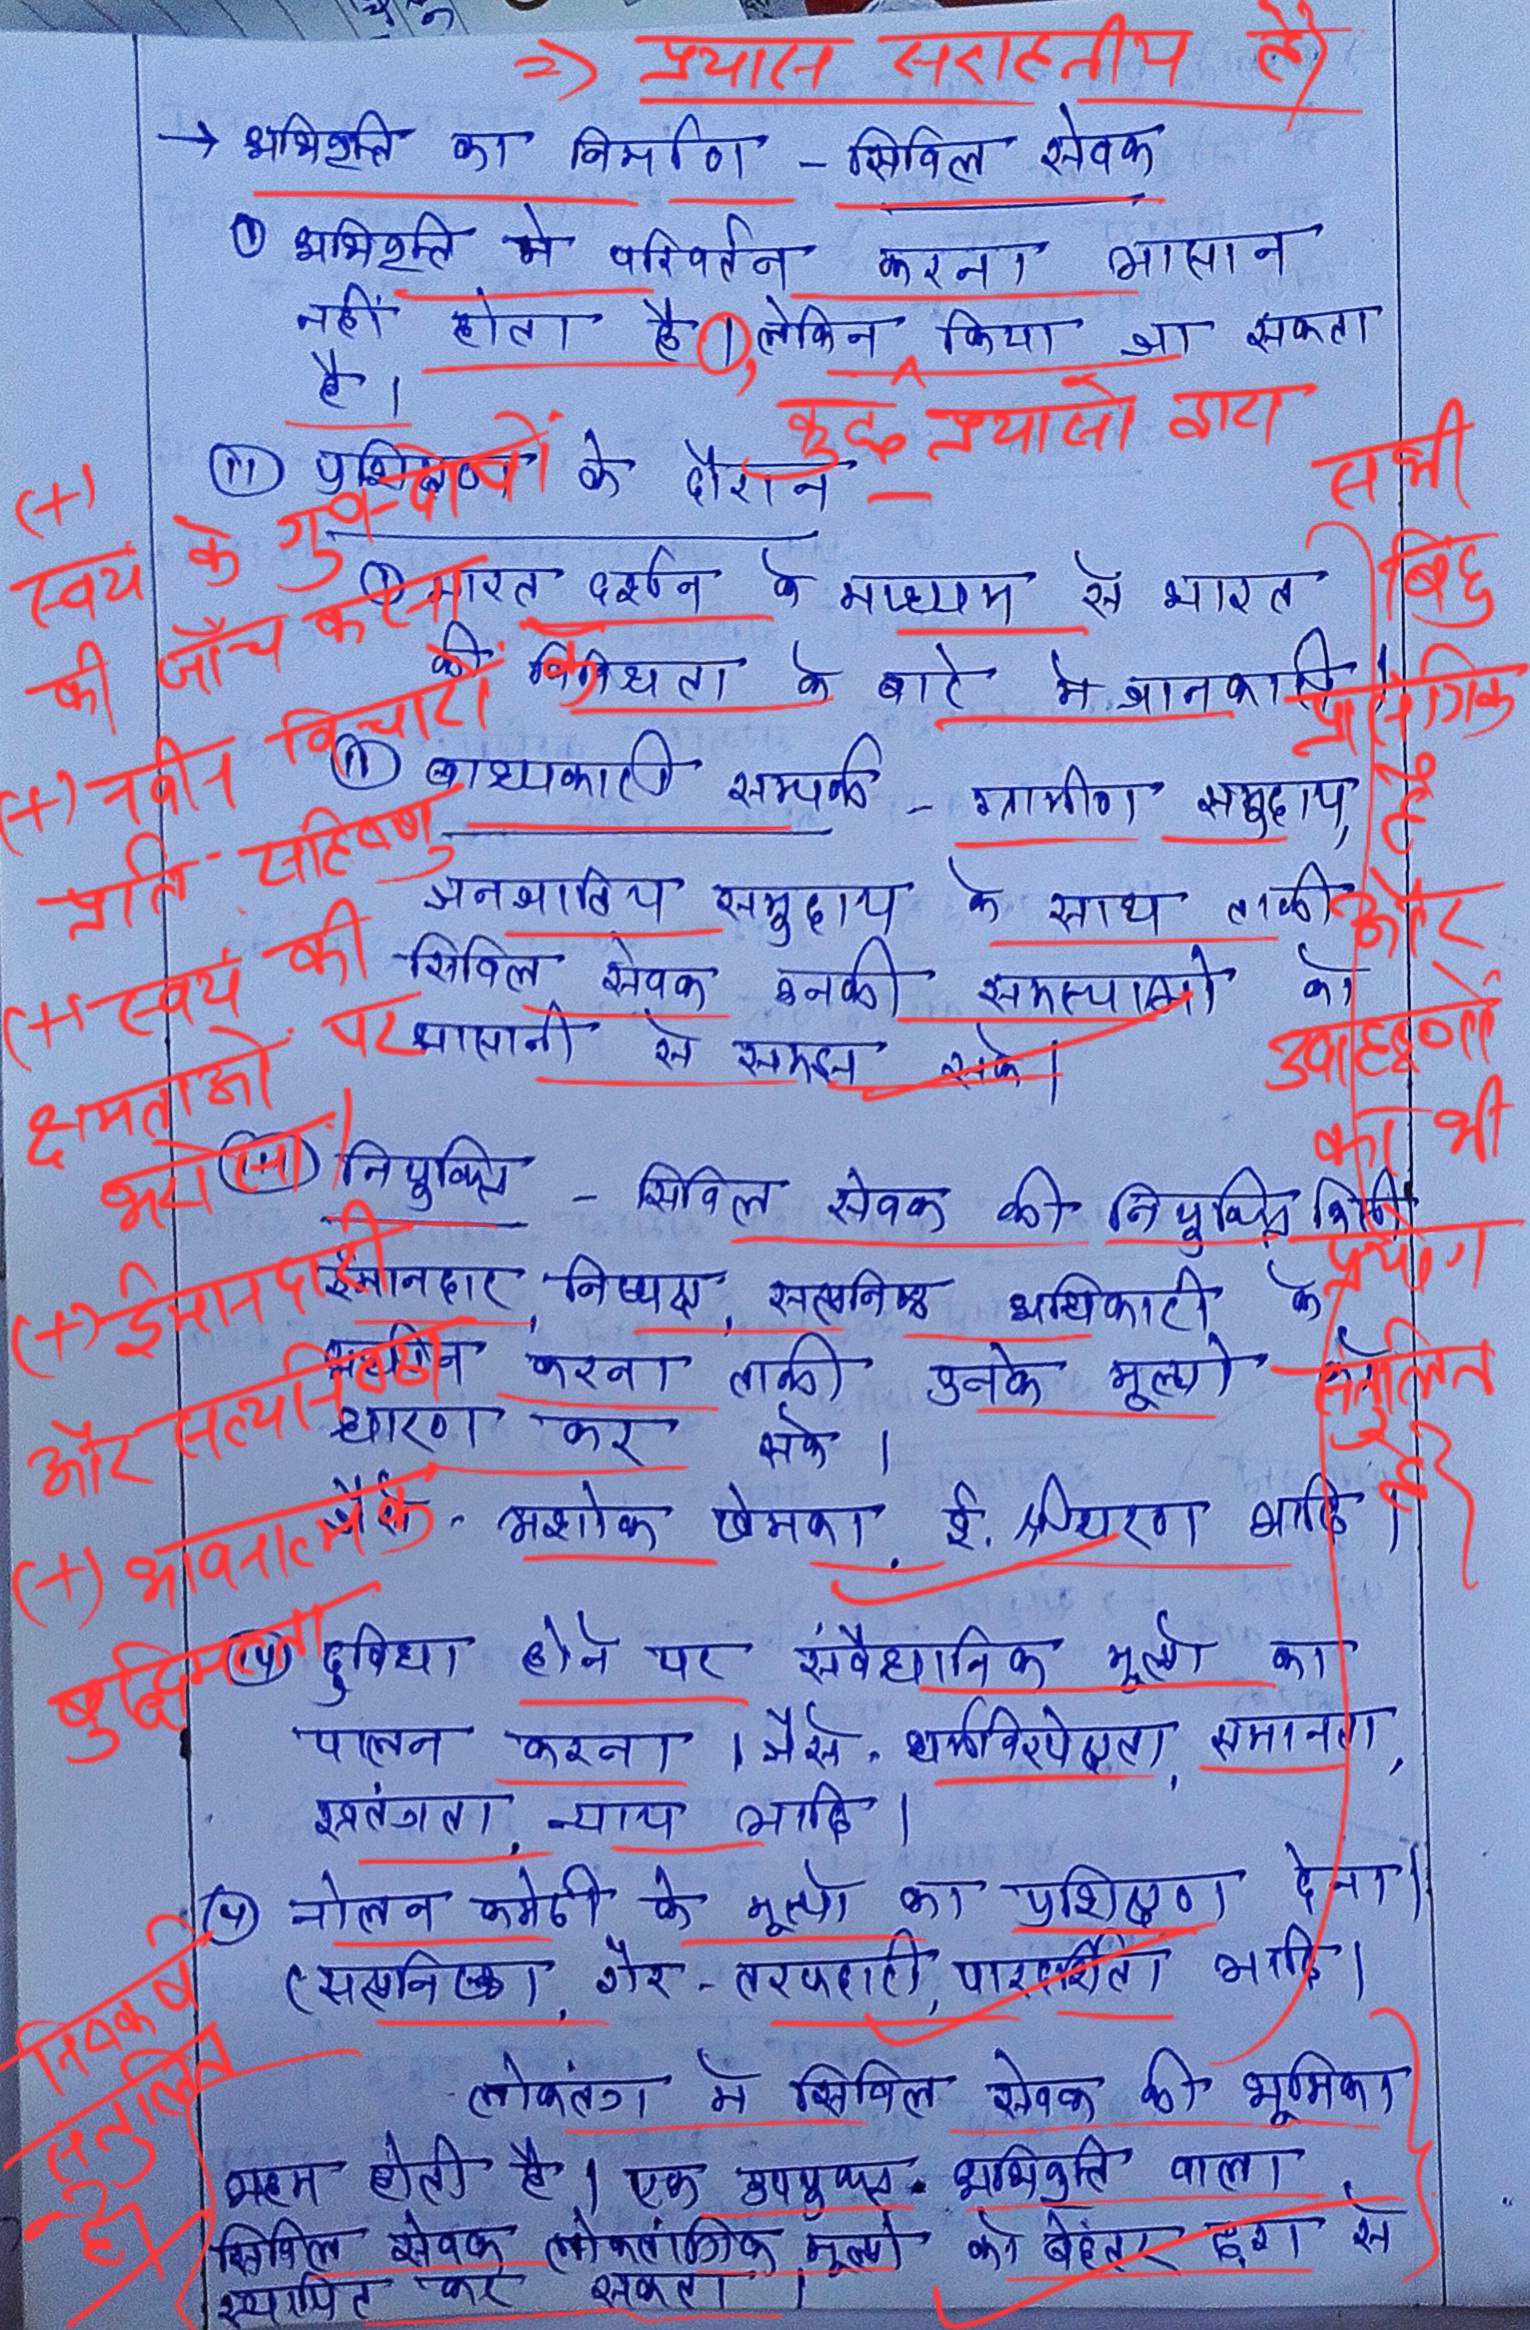 => प्रयास सराहनीय है।
→ अभिवृत्ति का निर्माण - सिविल सेवक
(i) अभिवृत्ति में परिवर्तन करना आसान
नहीं होता है।, लेकिन किया जा सकता
है।
कुछ प्रयासों द्वारा
(ii) प्रशिक्षण के दौरान -
(i) भारत दर्शन के माध्यम से भारत
की विविधता के बारे मे जानकारी।
(ii) बाध्यकारी सम्पर्क - ग्रामीण समुदाय,
जनजातिय समुदाय के साथ ताकी
सिविल सेवक उनकी समस्याओ को
आसानी से समझ सके।
(iii) नियुक्ति - सिविल सेवक की नियुक्ति किसी
ईमानदार, निष्पक्ष, सत्यनिष्ठ अधिकारी के
अधीन करना ताकी उनके मूल्यो
धारण कर सके।
जैसे - अशोक खेमका, ई. श्रीधरण आदि।
(iv) दुविधा होने पर संवैधानिक मूल्यो का
पालन करना। जैसे - धर्मनिरपेक्षता, समानता,
स्वतंत्रता, न्याय आदि।
(v) नोलन कमेटी के मूल्यो का प्रशिक्षण देना।
(सत्यनिष्ठा, गैर-तरफदारी, पारदर्शिता आदि।
लोकतंत्र में सिविल सेवक की भूमिका
अहम होती है। एक उपयुक्त अभिवृत्ति वाला
सिविल सेवक लोकतांत्रिक मूल्यो को बेहतर ढंग से
स्थापित कर सकता।
(+)
स्वयं के गुण-दोषों
की जाँच करना
(+) नवीन विचारों के
प्रति सहिष्णु
(+) स्वयं की
क्षमताओं पर
भरोसा।
(+) ईमानदारी
और सत्यनिष्ठा
(+) भावनात्मक
बुद्धिमत्ता
निष्कर्ष
संतुलित
है।
सभी
बिंदु
प्रासंगिक
है
और
उदाहरणों
का भी
प्रयोग
संतुलित
है।